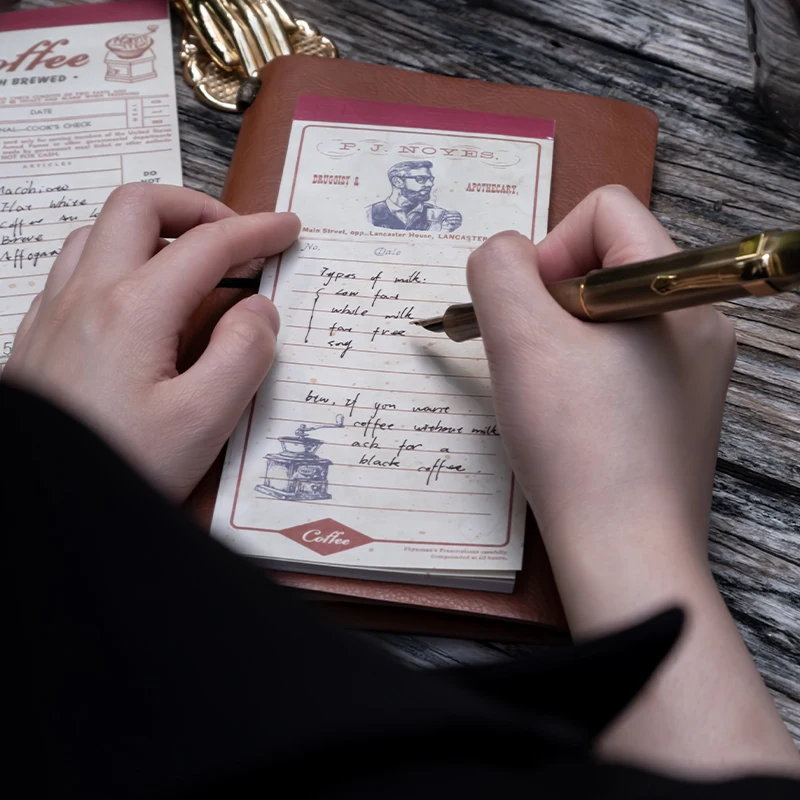 offee
H BREWED -
DATE
NAL—COOK'S CHECK
NOT FOR CASH.
ARTICLES
DO
NOT
Machiano
Flat White
coffee Au L
Breve
Affogan
5
P. J. NOYES,
DRUGGIST &
APOTHECARY,
Main Street, opp. Lancaster House, LANCASTER
No.
Date
Types of milk:
Low fat
whole milk
fat free
soy
btw, If you want
coffee without milk
ack for a
black coffee.
Coffee
Physician's Prescriptions carefully
Compounded at all hours.